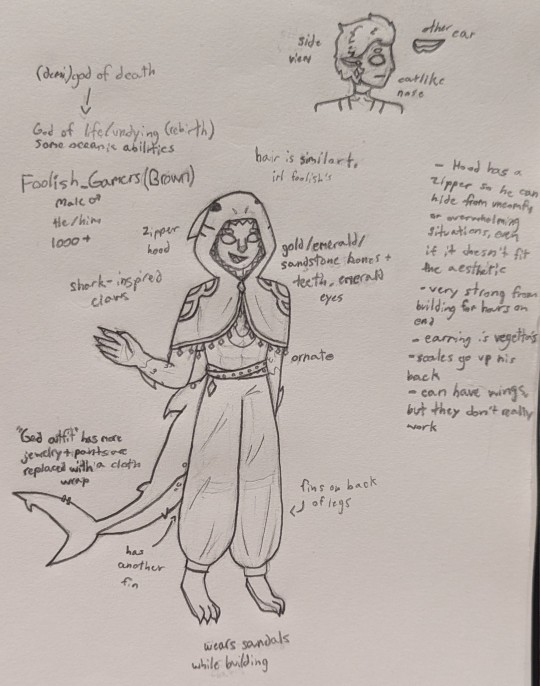 side
view
other
ear
catlike
nose
(demi)god of death
God of life/undying (rebirth)
some oceanic abilities
Foolish_Gamers (Brown)
male ♂
He/him
1000+
hair is similar t.
irl foolish's
zipper
hood
shark-inspired
claws
gold/emerald/
sandstone bones +
teeth, emerald
eyes
ornate
- Hood has a
zipper so he can
hide from
or overwhelming
situations, even
if it doesn't fit
the aesthetic
- very strong from
building for hours on
end
- earring is vegetta's
- scales go up his
back
- can have wings,
but they don't really
work
"God outfit" has more
jewelry + pants are
replaced with a cloth
wrap
has
another
fin
fins on back
of legs
wears sandals
while building